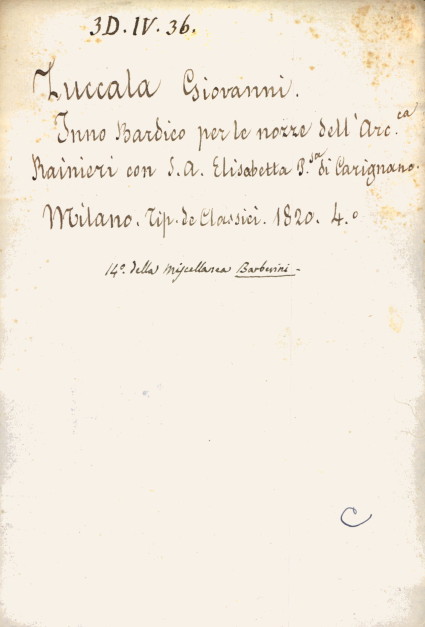 3D. IV. 36.
Zuccala Giovanni.
Inno Bardico per le nozze dell'Arc.ca
Rainieri con S. A. Elisabetta P.sa di Carignano.
Milano. Tip. de Classici. 1820. 4.o
14o. della Miscellanea Barberini -
C